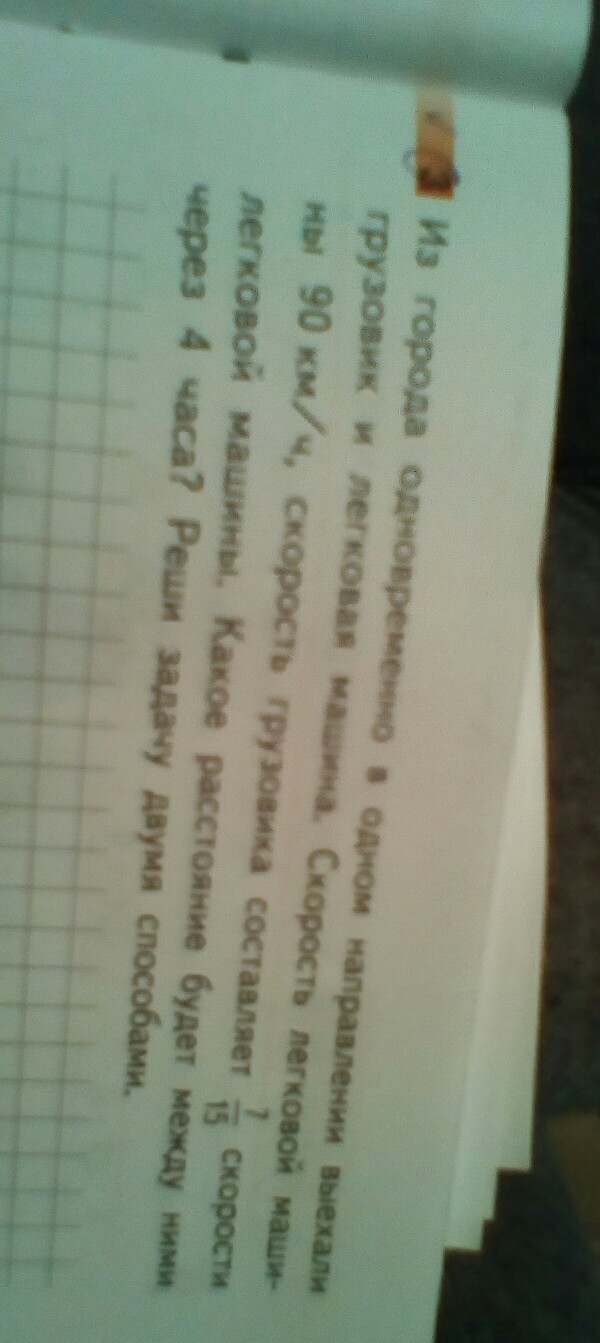 3 Из города одновременно в одном направлении выехали
грузовик и легковая машина. Скорость легковой маши-
ны 90 км/ч, скорость грузовика составляет 7/15 скорости
легковой машины. Какое расстояние будет между ними
через 4 часа? Реши задачу двумя способами.